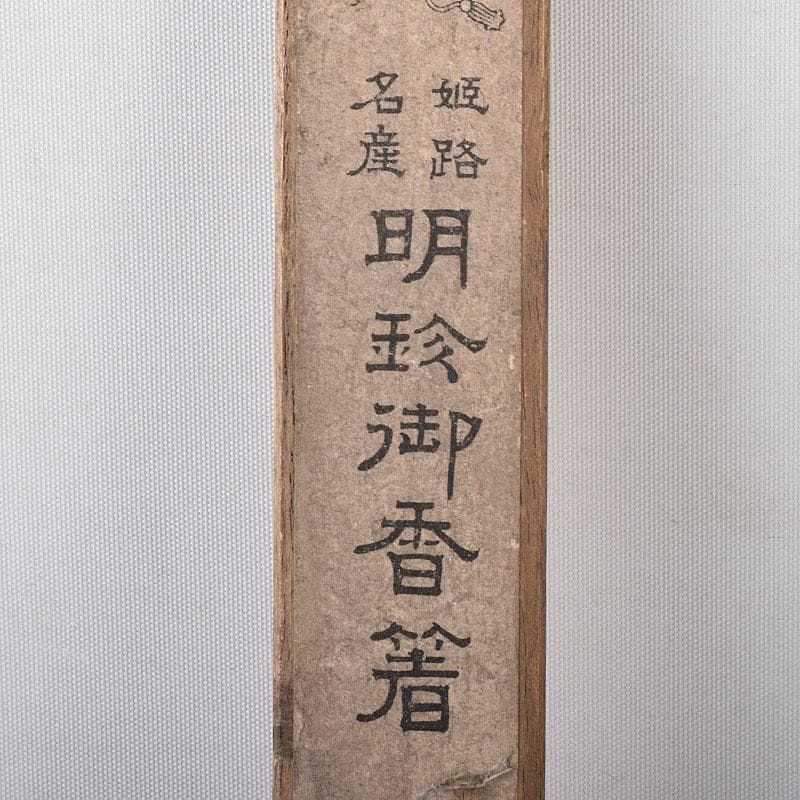 姫路
名産
明珍御香箸